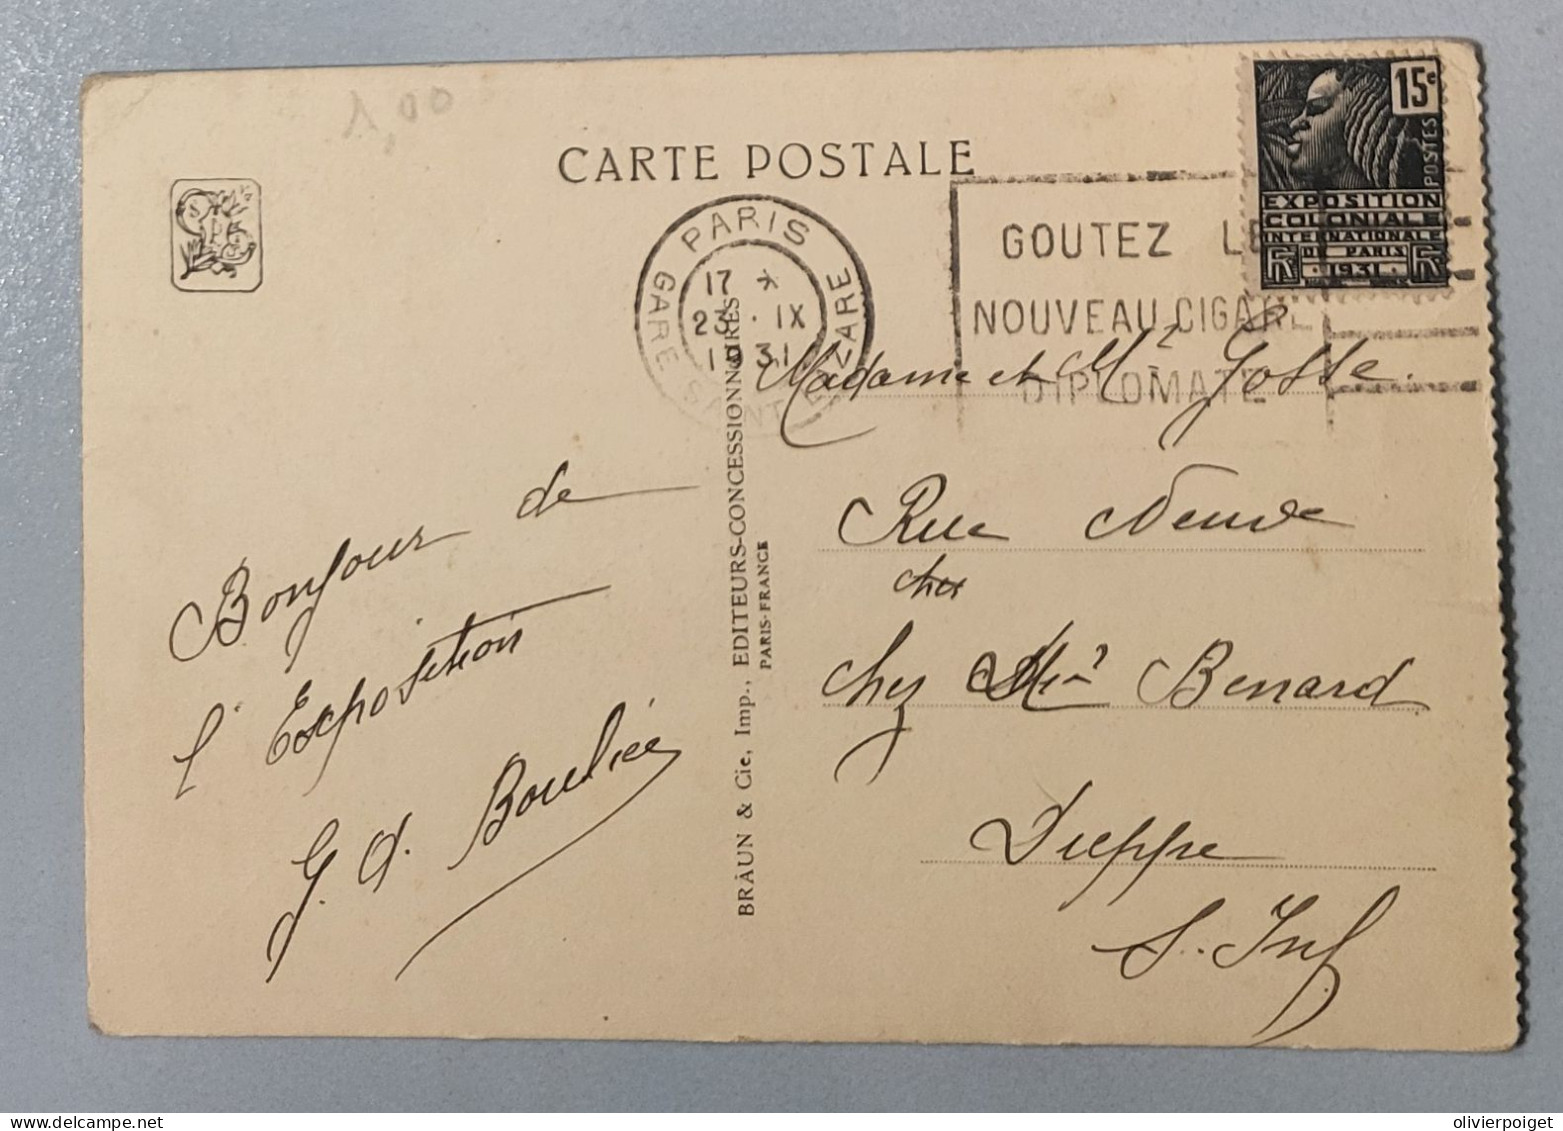 1,00
CARTE POSTALE
15c
POSTES
EXPOSITION
COLONIALE
INTERNATIONALE
DE PARIS
RF 1931 RF
PARIS
GARE SAINT LAZARE
17 *
23 . IX
1931
GOUTEZ LE
NOUVEAU CIGARE
DIPLOMATE
Bonjour de
l'Exposition
G. d.
BRAUN & Cie, Imp., EDITEURS-CONCESSIONNAIRES
PARIS-FRANCE
Madame et Mr Gosse.
Rue Neuve
chez
chez Mr Benard
Dieppe
S. Inf
olivierpoiget